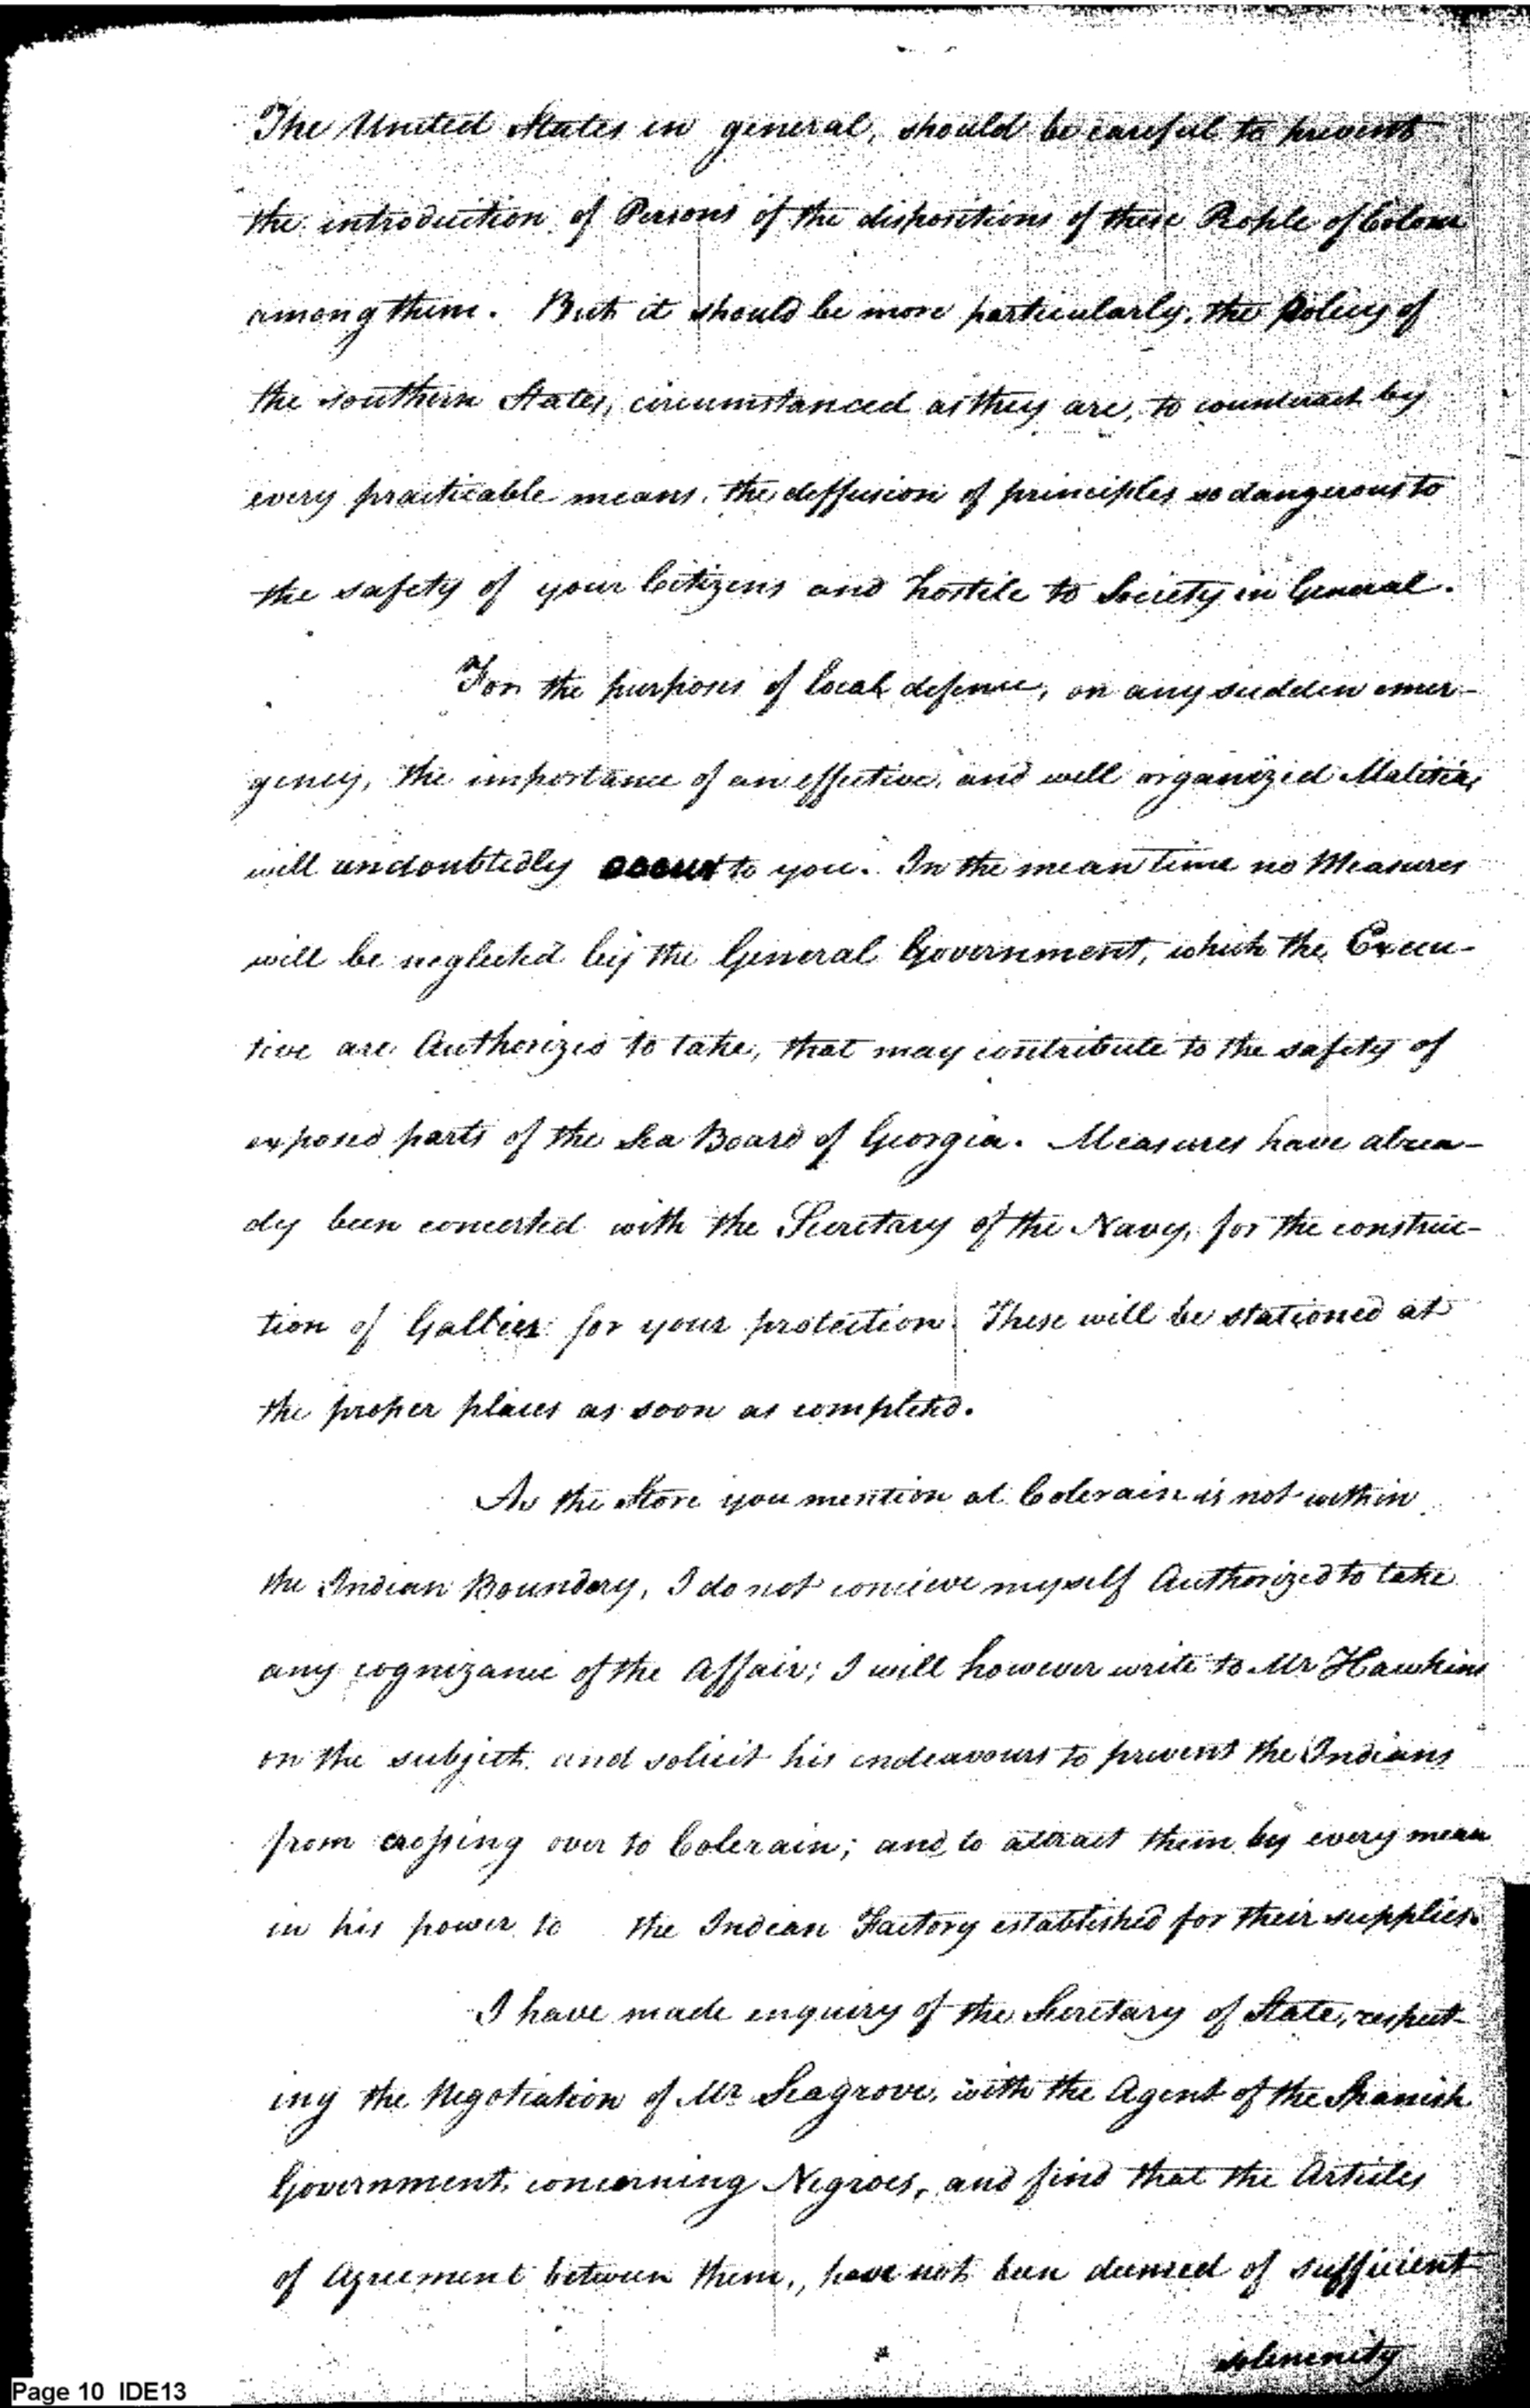 The United States in general, should be careful to prevent
the introduction of Persons of the dispositions of these People of Colour
among them. But it should be more particularly, the policy of
the southern States, circumstanced as they are, to counteract by
every practicable means, the deffusion of principles so dangerous to
the safety of your Citizens and hostile to Society in General.
For the purposes of local defence, on any sudden emer-
gency, the importance of an effective, and well organized Malitia,
will undoubtedly occur to you. In the mean time no Measures
will be neglected by the General Government, which the Execu-
tive are Authorized to take, that may contribute to the safety of
exposed parts of the Sea Board of Georgia. Measures have alrea-
dy been concerted with the Secretary of the Navy, for the construc-
tion of Gallies for your protection. These will be stationed at
the proper places as soon as completed.
As the Store you mention at Colerain is not within
the Indian Boundary, I do not concieve myself Authorized to take
any cognizance of the Affair; I will however write to Mr Hawkins
on the subject and solicit his endeavours to prevent the Indians
from crossing over to Colerain; and to attract them by every mean
in his power to the Indian Factory established for their supplies.
I have made enquiry of the Secretary of State, respect-
ing the Negotiation of Mr Seagrove, with the Agent of the Spanish
Government, concerning Negroes, and find that the Articles
of Agreement between them, have not been deemed of sufficient
solemnity
Page 10 IDE13